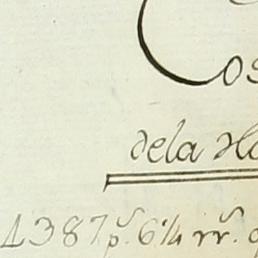 Cos
dela Ha
1387 p.s 6¼ rr.s